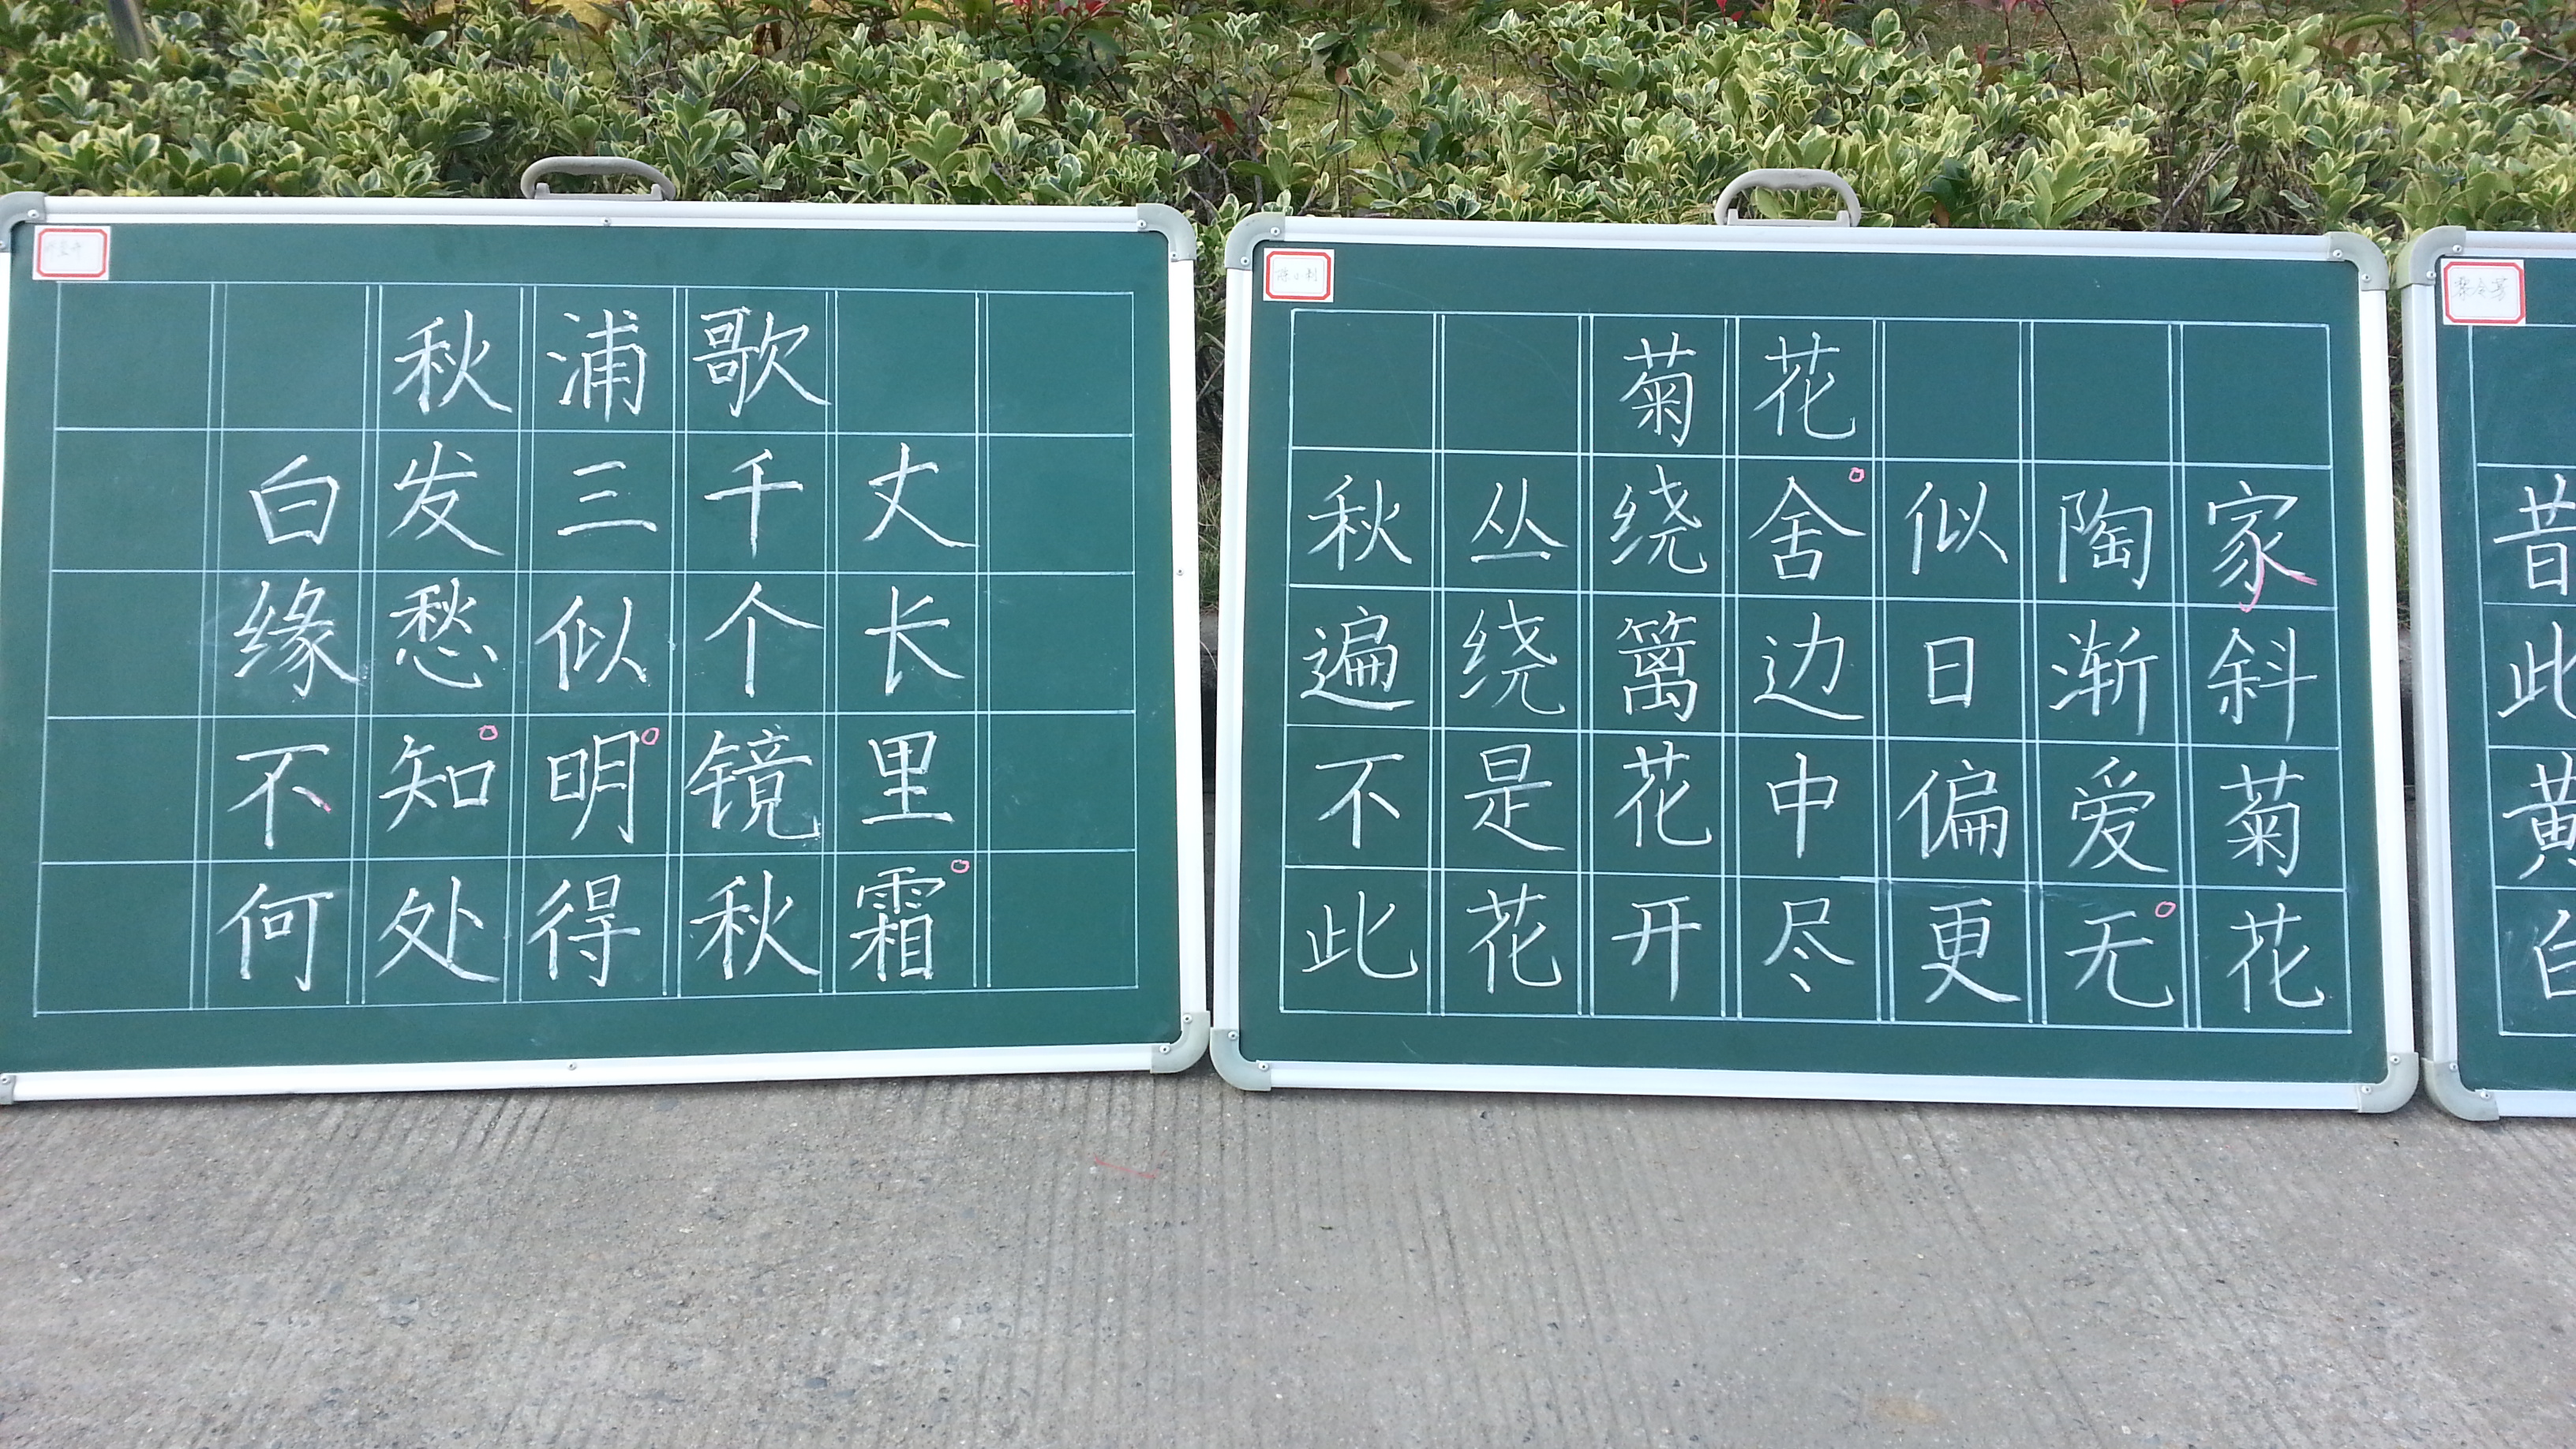 秋浦歌
白发三千丈
缘愁似个长
不知明镜里
何处得秋霜
菊花
秋丛绕舍似陶家
遍绕篱边日渐斜
不是花中偏爱菊
此花开尽更无花
昔
此
黄
白